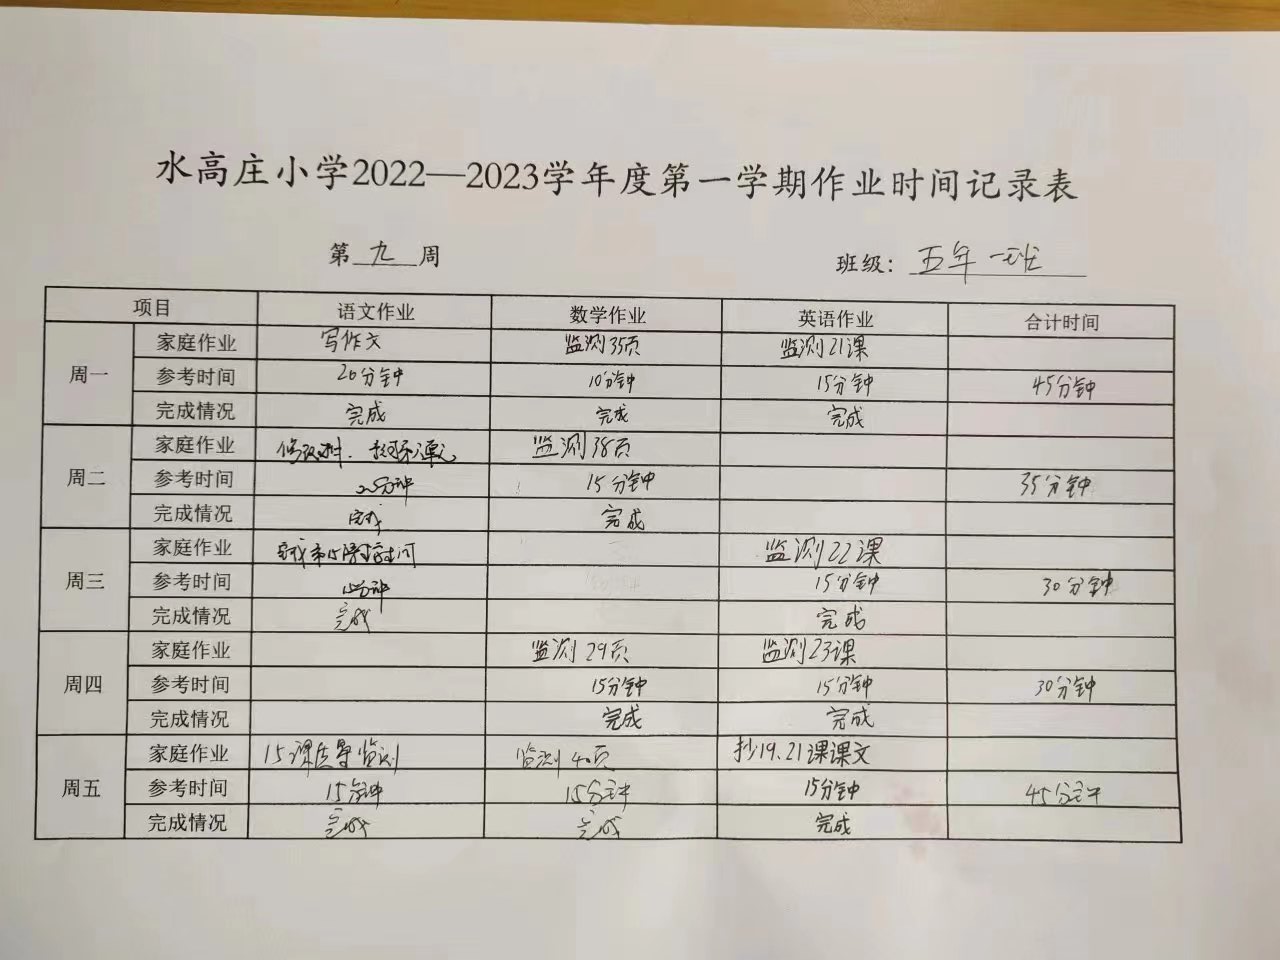 水高庄小学2022—2023学年度第一学期作业时间记录表
第 九 周 班级: 五年一班
项目 语文作业 数学作业 英语作业 合计时间
周一 家庭作业 写作文 监测35页 监测21课
参考时间 20分钟 10分钟 15分钟 45分钟
完成情况 完成 完成 完成
周二 家庭作业 监测38页
参考时间 15分钟 35分钟
完成情况 完成 完成
周三 家庭作业 监测22课
参考时间 15分钟 30分钟
完成情况 完成 完成
周四 家庭作业 监测29页 监测23课
参考时间 15分钟 15分钟 30分钟
完成情况 完成 完成
周五 家庭作业 15课质量监测 监测40页 抄19.21课课文
参考时间 15分钟 15分钟 15分钟 45分钟
完成情况 完成 完成 完成